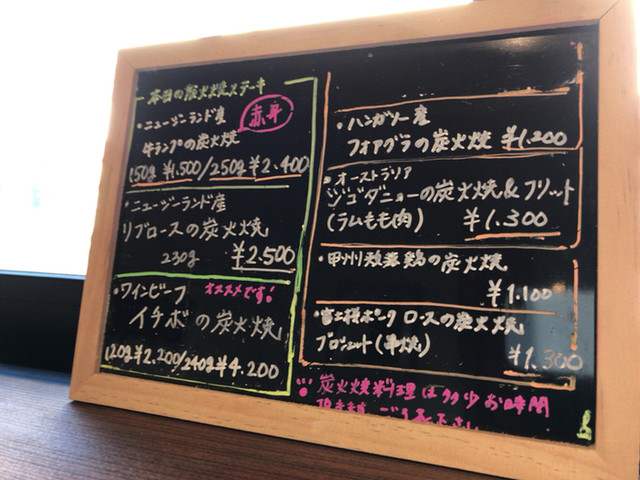 本日の炭火焼ステーキ
・ニュージーランド産
赤身
牛ランプの炭火焼
150g ¥1.500/250g ¥2.400
・ニュージーランド産
リブロースの炭火焼
230g ¥2.500
・ワインビーフ オススメです!
イチボの炭火焼
120g ¥2.200/240g ¥4.200
・ハンガリー産
フォアグラの炭火焼 ¥1.200
・オーストラリア
ジゴダニョーの炭火焼&フリット
(ラムもも肉) ¥1.300
・甲州地鶏の炭火焼
¥1.100
・富士桜ポーク ロースの炭火焼
ブロシェット(串焼) ¥1.300
炭火焼料理は多少お時間
頂きます ご了承下さい